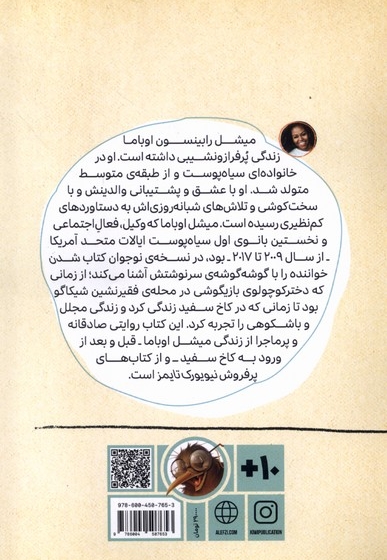 میشل رابینسون اوباما
زندگی پُرفرازونشیبی داشته است. او در
خانواده‌ای سیاه‌پوست و از طبقه‌ی متوسط
متولد شد. او با عشق و پشتیبانی والدینش و با
سخت‌کوشی و تلاش‌های شبانه‌روزی‌اش به دستاوردهای
کم‌نظیری رسیده است. میشل اوباما که وکیل، فعال اجتماعی
و نخستین بانوی اول سیاه‌پوست ایالات متحد آمریکا
ـ از سال ۲۰۰۹ تا ۲۰۱۷ ـ بود، در نسخه‌ی نوجوان کتاب شدن
خواننده را با گوشه‌گوشه‌ی سرنوشتش آشنا می‌کند؛ از زمانی
که دخترکوچولوی بازیگوشی در محله‌ی فقیرنشین شیکاگو
بود تا زمانی که در کاخ سفید زندگی کرد و زندگی مجلل
و باشکوهی را تجربه کرد. این کتاب روایتی صادقانه
و پرماجرا از زندگی میشل اوباما ـ قبل و بعد از
ورود به کاخ سفید ـ و از کتاب‌های
پرفروش نیویورک تایمز است.
+۱۰
978-600-450-765-3
9 786004 507653
ALEFZI.COM